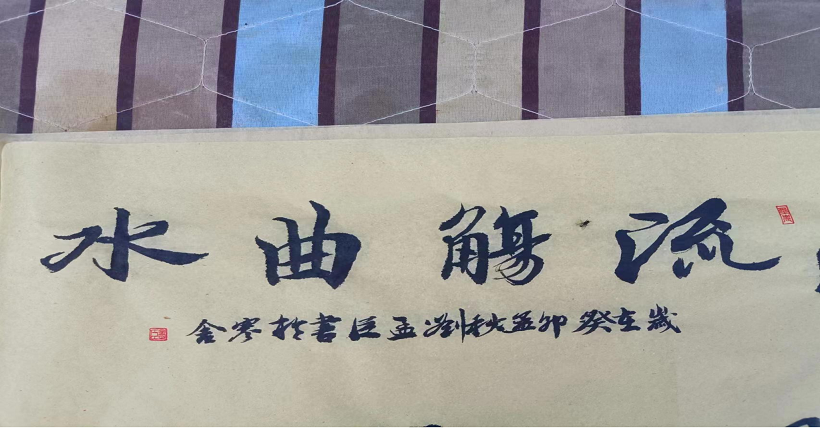 流觴曲水
歲在癸卯孟秋劉孟臣書於寒舍